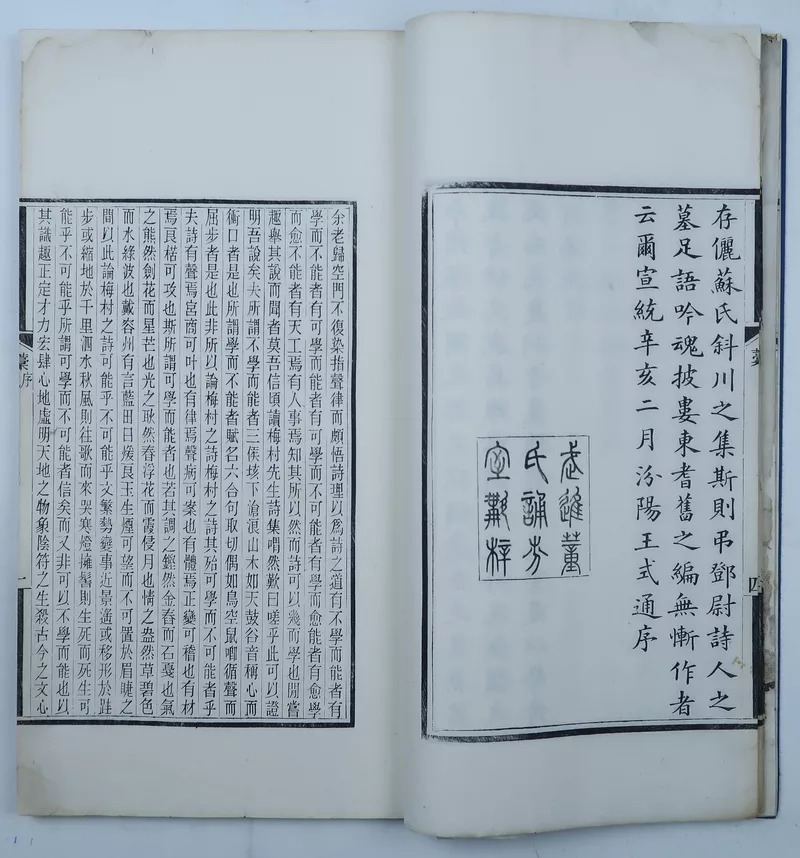 存儷蘇氏斜川之集斯則弔鄧尉詩人之
墓足語吟魂披婁東耆舊之編無慚作者
云爾宣統辛亥二月汾陽王式通序
武進董
氏誦芬
室刻梓
四
余老歸空門不復染指聲律而頗悟詩理以爲詩之道有不學而能者有
學而不能者有可學而能者有可學而不可能者有愈學而愈能者有愈學
而愈不能者有天工焉有人事焉知其所以然而詩可以幾而學也間嘗
趣舉其說而聞者莫吾信頃讀梅村先生詩集喟然歎曰嗟乎此可以證
明吾說矣夫所謂不學而能者三侯垓下滄浪山木如天鼓谷音稱心而
衝口者是也所謂學而不能者賦名六合句取切偶如鳥空鼠唧循聲而
屈步者是也此非所以論梅村之詩梅村之詩其殆可學而不可能者乎
夫詩有聲焉宮商可叶也有律焉聲病可案也有體焉正變可稽也有材
焉良楛可攻也斯所謂可學而能者也若其調之鏗然金舂而石戛也氣
之熊然劍花而星芒也光之耿然春浮花而霞侵月也情之盎然草碧色
而水綠波也戴容州有言藍田日煖良玉生煙可望而不可置於眉睫之
間以此論梅村之詩可能乎不可能乎文繁勢變事近景遙或移形於跬
步或縮地於千里泗水秋風則往歌而來哭寒燈擁髻則生死而死生可
能乎不可能乎所謂可學而不可能者信矣而又非可以不學而能也以
其識趣正定才力宏肆心地虛明天地之物象陰符之生殺古今之文心
序
一